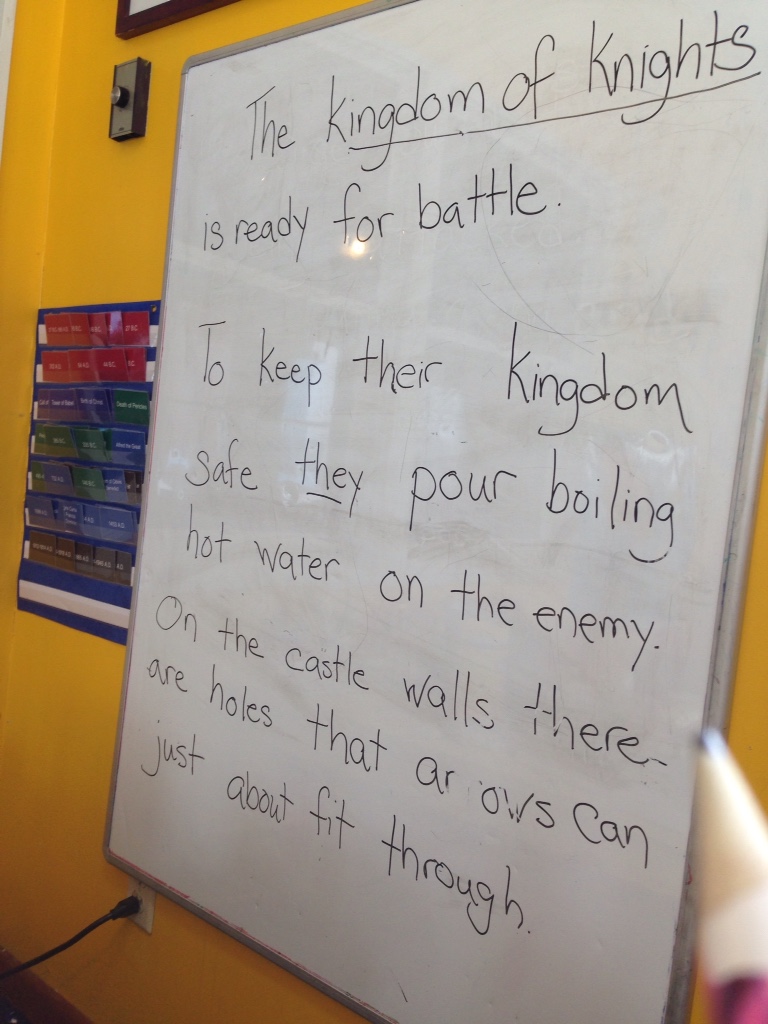 The kingdom of Knights
is ready for battle.
To keep their kingdom
safe they pour boiling
hot water on the enemy.
On the castle walls there
are holes that ar ows can
just about fit through.